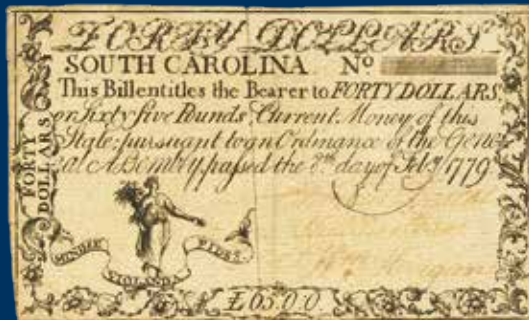 FORTY DOLLARS
SOUTH CAROLINA Nº
This Bill entitles the Bearer to FORTY DOLLARS
or Sixty five Pounds Current Money of this
State; pursuant to an Ordinance of the Gene-
ral Assembly, passed the 8th day of Feby 1779
FORTY
DOLLARS
FIDES.
VIOLANDI
£65.0.0